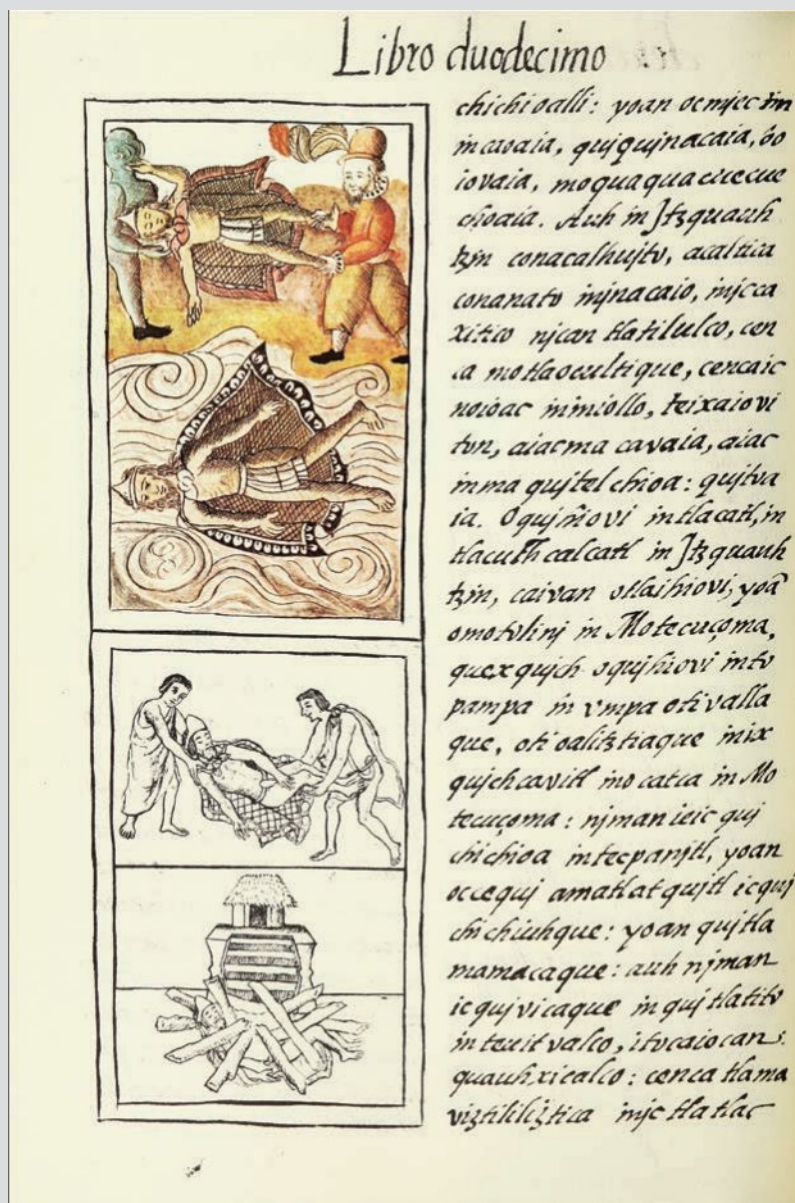 Libro duodecimo
chichioalli: yoan oc mjec tin
in caoaia, qujqujnacaia, oo
iovaia, moquaquacuecue
choaia. Auh in Jtzquauh
tzin conacalhujto, acaltica
conanato injnacaio, injcca
xitico njcan tlatilulco, cen
ca motlaocultique, cencaic
noioac inmiollo, teixaiovi
ton, aiacma cavaia, aiac
inma qujtelchioa: qujtoa
ia. Oqujñovi intlacatl, in
tlacuchcalcatl in Jtzquauh
tzin, caivan otlaihiovi, yoã
omotolinj in Motecuçoma,
quexqujch oqujhiovi into
pampa in vmpa otivalla
que, otioalitztiaque inix
qujchcavitl mocatca in Mo
tecuçoma: njman ieic quj
chichioa intecpanjtl, yoan
occequj amatlatqujtl icquj
chichiuhque: yoan qujtla
mamacaque: auh njman
ie qujvicaque in qujtlatito
in teuitvalco, itocaiocan:
quauhxicalco: cenca tlama
viztililiztica injc tlatlac